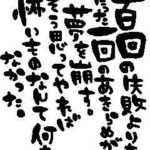 百回の失敗よりも
たった一回のあきらめが
夢を崩す。
そう思ってやれば
怖いものなんて何も
なかった。